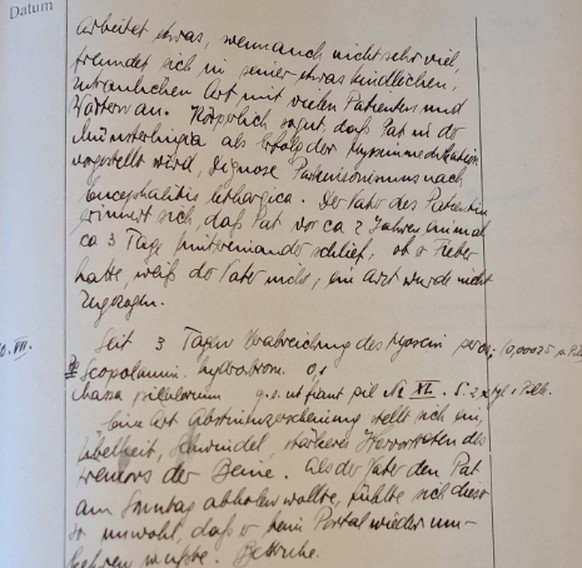 Datum
arbeitet etwas, wenn auch nicht sehr viel,
freundet sich in seiner etwas kindlichen,
zutraulichen Art mit vielen Patienten und
Wärtern an. Körperlich so gut, daß Pat in der
Münsterlingia als Erfolg der Hyoscinmedikation
vorgestellt wird, Diagnose Parkinsonismus nach
Encephalitis lethargica. Der Vater des Patienten
erinnert sich, daß Pat vor ca 2 Jahren einmal
ca 3 Tage hintereinander schlief; ob er Fieber
hatte, weiß der Vater nicht; ein Arzt wurde nicht
zugezogen.
0.VII. Seit 3 Tagen Verabreichung des Hyoscin per os: (0,00025 p. Pille)
Scopolamin. hydrobrom. 0,1
Massa pillularum q.s. ut fiant pil No XL. S. 2 x tgl 1 Pille.
Eine Art Abstinenzerscheinung stellt sich ein,
Übelheit, Schwindel, stärkeres Hervortreten des
Tremors der Beine. Als der Vater den Pat
am Sonntag abholen wollte, fühlte sich dieser
so unwohl, daß er beim Portal wieder um-
kehren mußte. Bettruhe.